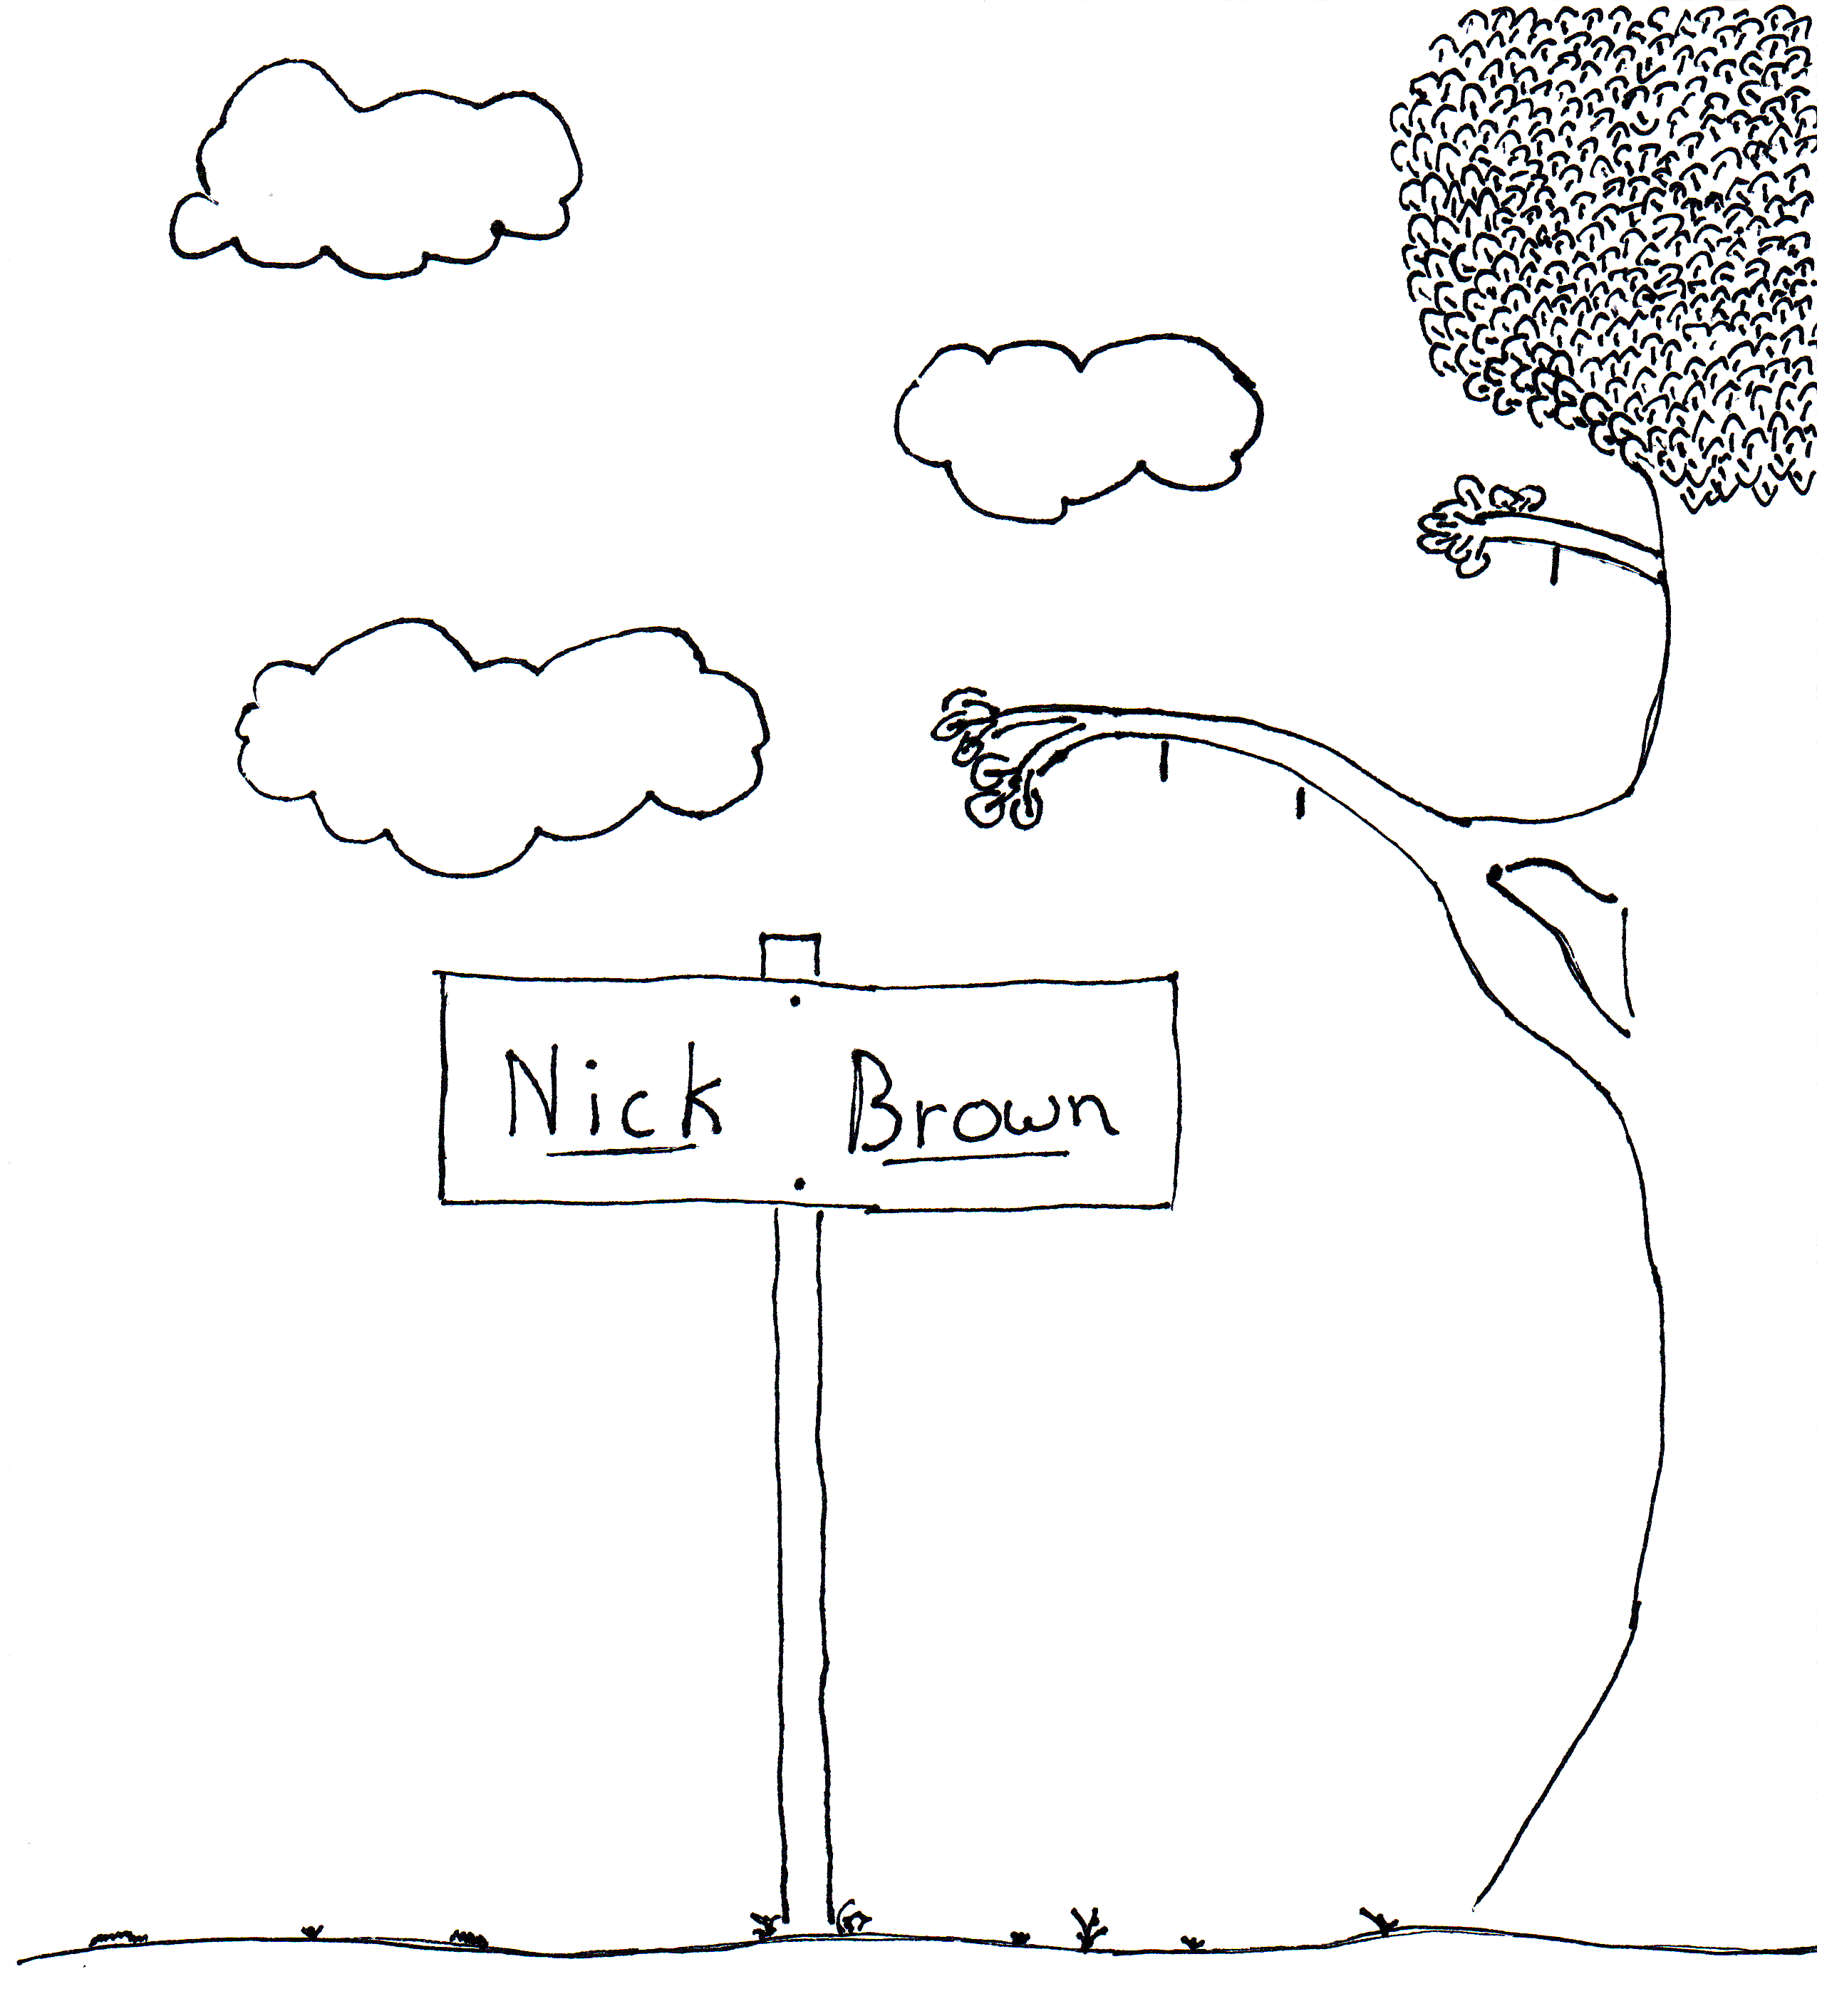 Nick Brown